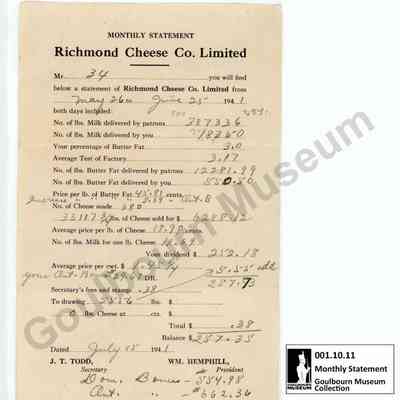 MONTHLY STATEMENT
Richmond Cheese Co. Limited
Mr. 34 you will find
below a statement of Richmond Cheese Co. Limited from
May 26 to June 25 1941
both days included:
No. of lbs. Milk delivered by patrons 387336
No. of lbs. Milk delivered by you 18350
Your percentage of Butter Fat 3.0
Average Test of Factory 3.17
No. of lbs. Butter Fat delivered by patrons 12281.99
No. of lbs. Butter Fat delivered by you 550.50
Price per lb. of Butter Fat 45.81 cents.
No. of Cheese made 380
33117 lbs. of Cheese sold for $ 6288.12
Average price per lb. of Cheese 18.98 cents.
No. of lbs. Milk for one lb. Cheese 11.69
Your dividend $ 252.18
Average price per cwt. $
257.73
Secretary's fees and stamp .38
To drawing 5556 lbs. $
0 lbs. Cheese at cts. $
Total $ .38
Balance $ 257.35
Dated July 15 1941
J. T. TODD, WM. HEMPHILL,
Secretary President
Dom. Bonus - $54.98
Ont. " - $62.36
Goulbourn Museum
001.10.11
Monthly Statement
Goulbourn Museum
Collection
GOULBOURN
MUSEUM